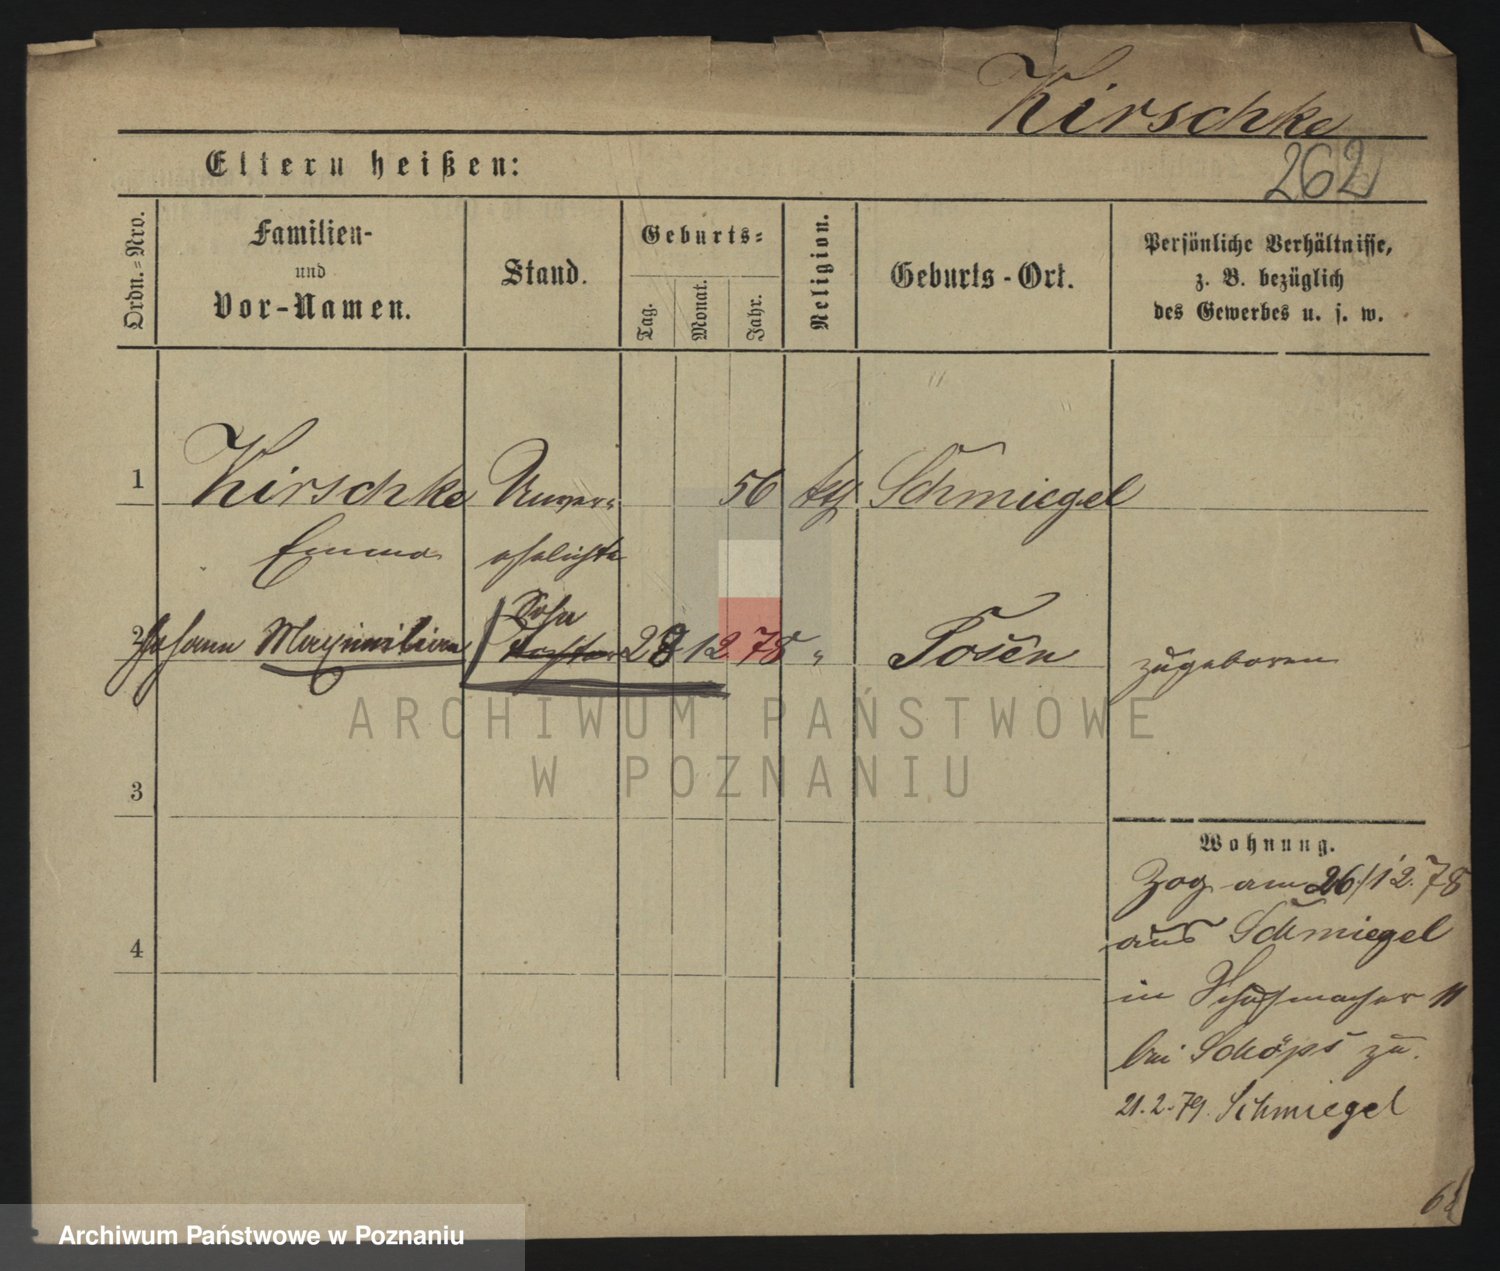 Kirschke
Eltern heißen:
262
Ordn.=Nro.
Familien-
und
Vor-Namen.
Stand.
Geburts=
Tag.
Monat.
Jahr.
Religion.
Geburts-Ort.
Persönliche Verhältnisse,
z. B. bezüglich
des Gewerbes u. s. w.
1 Kirschke Unver= 56 kth Schmiegel
Emma ehelichte
Sohn
2 Johann Maximilian Tochter 28 12 78 " Posen zugeboren
ARCHIWUM PAŃSTWOWE
W POZNANIU
3
Wohnung.
Zog am 26/12.78
4
aus Schmiegel
in Schuhmacher 11
bei Schöps zu.
21.2.79. Schmiegel
Archiwum Państwowe w Poznaniu